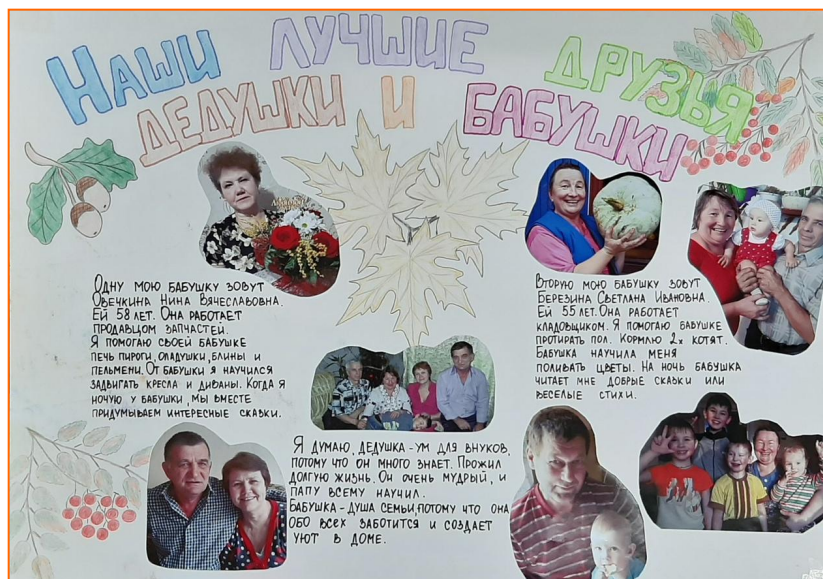 Наши лучшие друзья
дедушки и бабушки
Одну мою бабушку зовут
Овечкина Нина Вячеславовна.
Ей 58 лет. Она работает
продавцом запчастей.
Я помогаю своей бабушке
печь пироги, оладушки, блины и
пельмени. От бабушки я научился
задвигать кресла и диваны. Когда я
ночую у бабушки, мы вместе
придумываем интересные сказки.
Вторую мою бабушку зовут
Березина Светлана Ивановна.
Ей 55 лет. Она работает
кладовщиком. Я помогаю бабушке
протирать пол. Кормлю 2х котят.
Бабушка научила меня
поливать цветы. На ночь бабушка
читает мне добрые сказки или
веселые стихи.
Я думаю, дедушка - ум для внуков,
потому что он много знает. Прожил
долгую жизнь. Он очень мудрый, и
папу всему научил.
Бабушка - душа семьи, потому что она
обо всех заботится и создает
уют в доме.